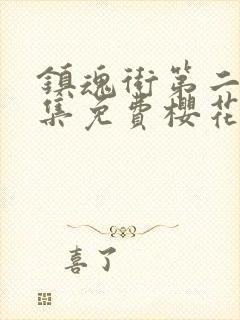 鎮魂街第二
集免費櫻花
喜了